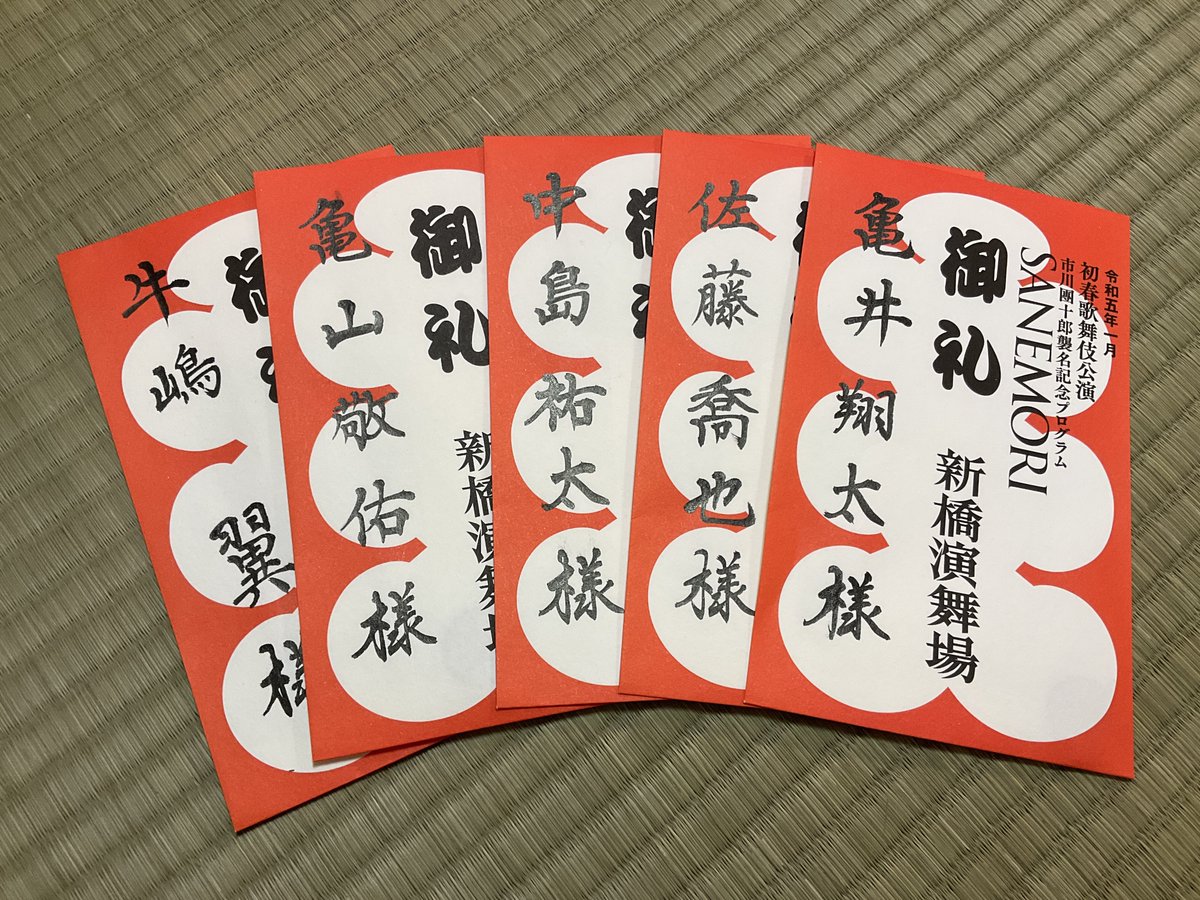 令和五年一月
初春歌舞伎公演
市川團十郎襲名記念プログラム
SANEMORI
御礼
新橋演舞場
亀井翔太様
佐藤喬也様
中島祐太様
御礼
新橋演舞場
亀山敬佑様
御
牛嶋翼様